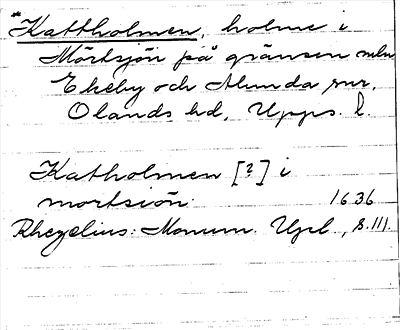 *Kattholmen, holme i
Mörtsjön på gränsen mln
Ekeby och Alunda snr,
Olands hd, Upps. l.
Kattholmen [?] i
mortsiön. 1636
Rhezelius: Monum. Upl., s. 111.